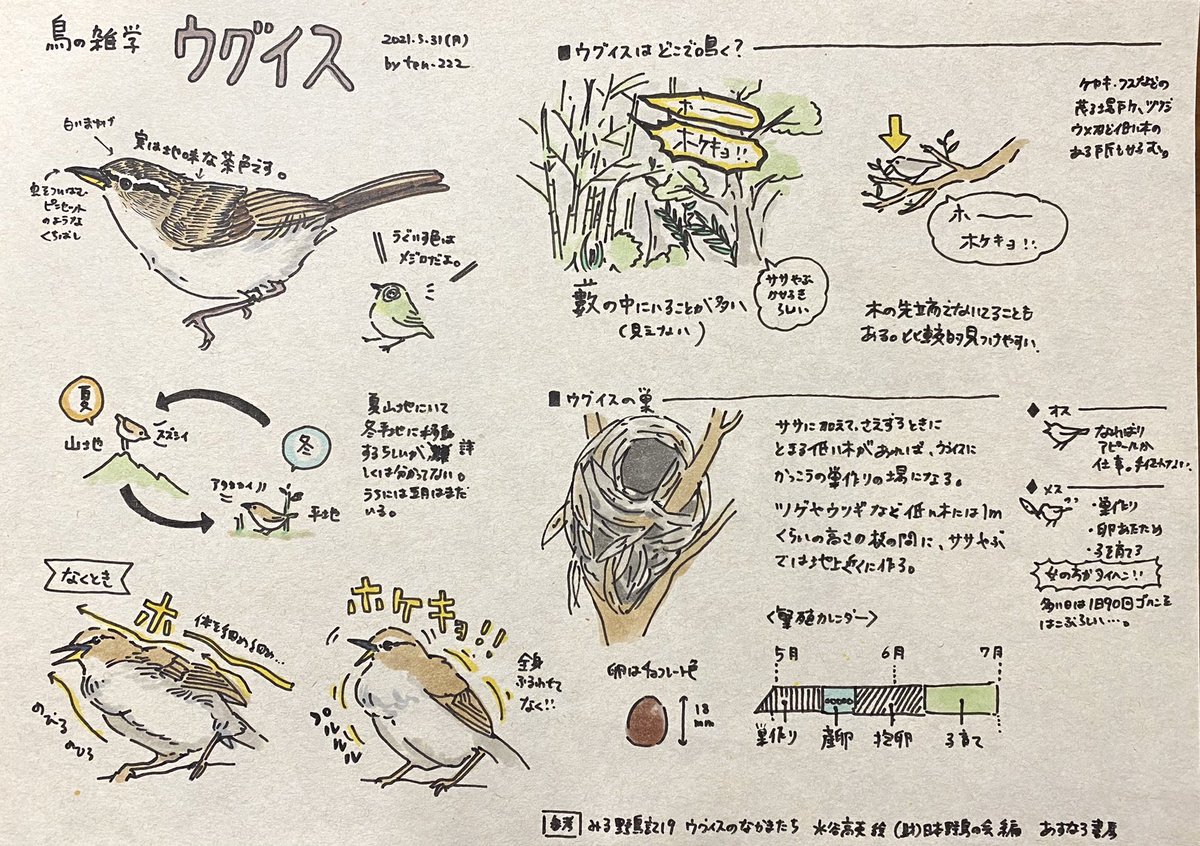 鳥の雑学 ウグイス
2021.5.31(月)
by ten-222
白いまゆげ
実は地味な茶色です。
虫をついばむ
ピンセット
のような
くちばし
うぐいす色は
メジロだよ。
夏
山地
スズシイ
冬
アタタカイ
平地
夏山地にいて
冬平地に移動
するらしいが 詳
しくは分かってない。
うちには五月はまだ
いる。
なくとき
ホ
体を細め細め…
のびる
のびる
ホケキョ!!
全身
ふるわせて
なく!!
プルルルル
■ウグイスはどこで鳴く?
ホー
ホケキョ!!
藪の中にいることが多い
(見えない)
ササやぶ
かせるき
らしい
ケヤキ・クスなどの
茂る場所や、ツツジ
ウメなど低い木の
ある所も
ホー
ホケキョ!!
木の先端でないてることも
ある。比較的見つけやすい。
■ウグイスの巣
ササに加えて、さえずるときに
とまる低い木があれば、ウグイスに
かっこうの巣作りの場になる。
ツゲやウツギなど低い木には1m
くらいの高さの枝の間に、ササやぶ
では地上近くに作る。
◆オス
なわばり
アピールが
仕事。手伝わない
◆メス
・巣作り
・卵あたため
・子を育てる
女の方がタイヘン!!
多い日は1日90回ゴハンを
はこぶらしい…。
卵はチョコレート色
18
mm
<繁殖カレンダー>
5月 6月 7月
巣作り 産卵 抱卵 子育て
参考 みる野鳥記19 ウグイスのなかまたち 水谷高英 絵 (財)日本野鳥の会 編 あすなろ書房